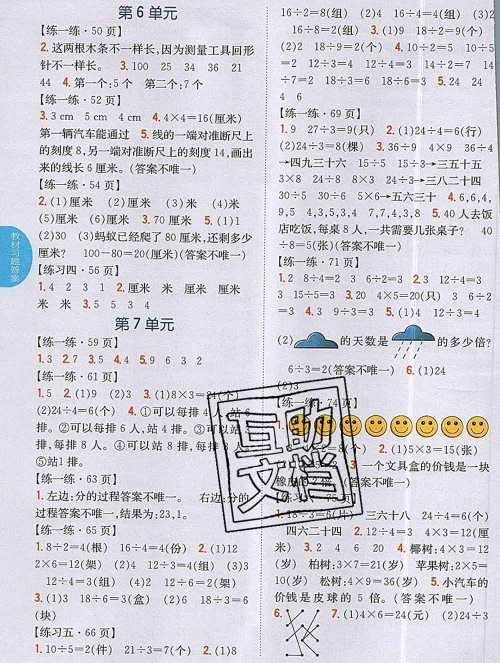 第6单元
【练一练·50页】
2.这两根木条不一样长,因为测量工具回形
针不一样长。 3.100 25 34 36 21
44 4.第一个:5个 第二个:7个
【练一练·52页】
3.3 cm 5 cm 4 cm 4.4×4=16(厘米)
第一辆汽车能通过 5.线的一端对准断尺上
的刻度8,另一端对准断尺上的刻度14,画出
来的线长6厘米。(答案不唯一)
【练一练·54页】
2.(1)厘米 (2)厘米 (3)米 (4)米
(5)厘米 (6)厘米 3.70厘米 5.(1)1
(2)30 (3)蚂蚁已经爬了80厘米,还剩多少
厘米? 100-80=20(厘米)(答案不唯一)
【练习四·56页】
1.4 2 3 1 2.厘米 米 厘米 厘米
米 米 3.5 5 3 4
第7单元
【练一练·59页】
1.3 2.7 3.5 4.4 5.9 6 3 2
【练一练·61页】
1.5 2.(1)9 (2)3 3.(1)8×3=24(个)
(2)24÷4=6(个) 4.①可以每排4 站6
排。②可以每排6人,站4排。③可以
排,每排8人。④可以站8排,每排
⑤站1排。
【练一练·63页】
1.左边:分的过程答案不唯一。 右边:分的
过程答案不唯一,结果为:23,1。
【练一练·65页】
1.8÷2=4(根) 16÷4=4(份) 2.(1)12
2×6=12(架) (2)4 12÷3=4(组) (3)3
12÷4=3(组) (4)2 12÷6=2(架)
3.(1)3 18÷6=3(盒) (2)6 18÷3=6
(块)
【练习五·66页】
1.10÷5=2(件) 21÷3=7(个) 2.(1)8
16÷2=8(组) (2)4 16÷4=4(组) (3)2
16÷8=2(组) 3.(1)9 18÷2=9(个)
(2)2 18÷9=2(个) 4.10÷2=5 10÷5
=2 12÷3=4 12÷4=3 14÷2=7 14
÷7=2 18÷3=6 18÷6=3 5.24 24
4 6
【练一练·69页】
1.9 27÷3=9(只) 2.(1)24÷4=6(行)
(2)24÷3=8(棵) 3.36÷9 4×9 36÷4
→四九三十六 15÷5 15÷3→三五十五
3×8 24÷8 8×3 24÷3→三八二十四
30÷5 30÷6 5×6→五六三十 4.6,6,4,
9,5 4,3,5,3,4 7,7,4,3,8 5.40人去饭
店吃饭,每桌8人,一共需要几张桌子? 40
÷8=5(张)(答案不唯一)
【练一练·71页】
1.2 8÷4=2 3 6÷2=3 2.3 12÷4=3
3 15÷5=3 3.20 4×5=20(只) 3 6÷2
=3 4.3 9÷3=3 5.(1)4 12÷3=4
(2) 的天数是 的多少倍?
6÷3=2(答案不唯一) 6.(1)24
(2)3
【练一练·74页】
=8(个) 2.(1)5×3=15(张)
3.一个文具盒的价钱是一块
(答案不唯一)
75页】
1.18÷3=6(片) 三六十八 24÷4=6(个)
四六二十四 2.12÷4=3 4×3=12(厘
米) 3.2 4 6 20 4.椰树:4×3=12
(岁) 柏树:3×7=21(岁) 苹果树:2×5=
10(岁) 松树:4×9=36(岁) 5.小汽车的
价钱是皮球的5倍。(答案不唯一)
6. 7.(1)4×6=24(元) (2)24÷3
教材习题答案
互助
文档